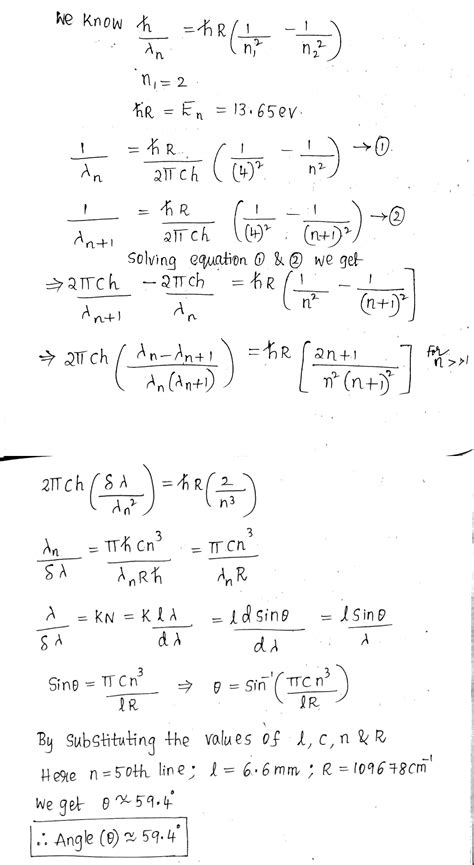 We know ℏ/λn = ℏR(1/n₁² - 1/n₂²)
n₁ = 2
ℏR = En = 13.65ev.
1/λn = ℏR/2πch (1/(4)² - 1/n²) → ①
1/λn+1 = ℏR/2πch (1/(4)² - 1/(n+1)²) → ②
Solving equation ① & ② we get
⇒ 2πch/λn+1 - 2πch/λn = ℏR[1/n² - 1/(n+1)²]
⇒ 2πch(λn-λn+1/λn(λn+1)) = ℏR[2n+1/n²(n+1)²] for n>>1
2πch(δλ/λn²) = ℏR(2/n³)
λn/δλ = πℏcn³/λnRℏ = πcn³/λnR
λ/δλ = KN = Klλ/dλ = ldsinθ/dλ = lsinθ/λ
Sinθ = πcn³/lR ⇒ θ = sin⁻¹(πcn³/lR)
By substituting the values of l, c, n & R
Here n=50th line; l = 6.6mm; R=109678cm⁻¹
we get θ≈59.4°
∴ Angle (θ) ≈ 59.4°